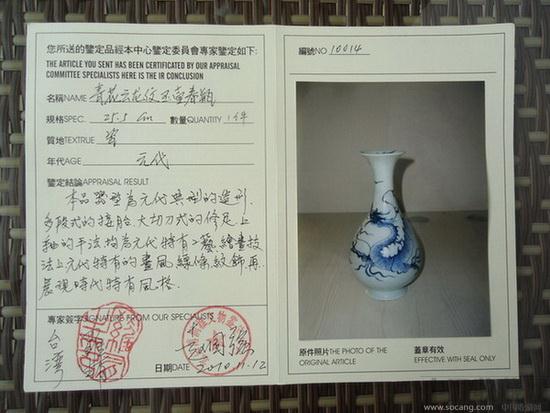 您所送的鑒定品經本中心鑒定委員會專家鑒定如下:
THE ARTICLE YOU SENT HAS BEEN CERTIFICATED BY OUR APPRAISAL
COMMITTEE SPECIALISTS HERE IS THE IR CONCLUSION
名稱NAME 青花云龙纹玉壶春瓶
規格SPEC. 25.5 cm 數量QUANTITY 1件
質地TEXTRUE 瓷
年代AGE 元代
鑒定結論APPRAISAL RESULT
本品器型為元代典型的造型.
多段式的接胎.大切刀式的修足.上
釉的手法均為元代特有工藝繪畫技
法上元代特有的畫風線條紋飾再
展現時代特有風格.
專家簽字SIGNATURE FROM OUR SPECIALISTS
台灣
日期DATE 2010.11.12
編號NO 10014
原件照片THE PHOTO OF THE
ORIGINAL ARTICLE
蓋章有效
EFFECTIVE WITH SEAL ONLY
www.socang.com